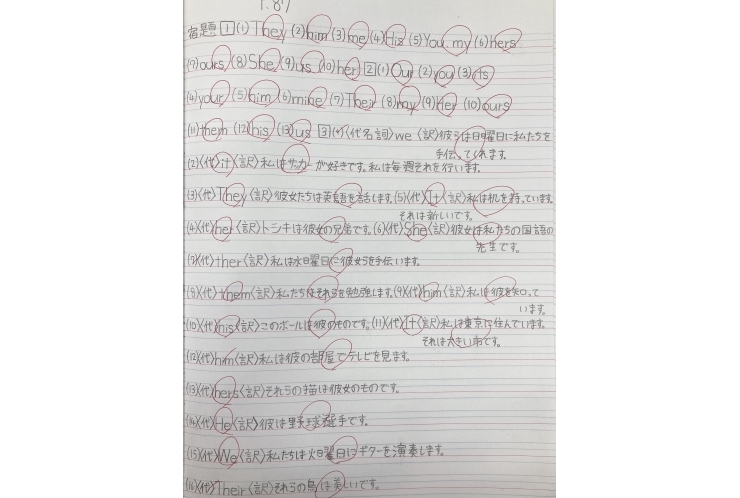 P.87
宿題 1 (1) They (2) him (3) me (4) His (5) You, my (6) hers
(7) ours (8) She (9) us (10) her 2 (1) Our (2) you (3) its
(4) your (5) him (6) mine (7) Their (8) my (9) Her (10) ours
(11) them (12) his (13) us 3 (1)〈代名詞〉we〈訳〉彼らは日曜日に私たちを
手伝ってくれます。
(2)〈代〉it〈訳〉私はサッカーが好きです。私は毎週それを行います。
(3)〈代〉They〈訳〉彼女たちは英語を話します。(5)〈代〉It〈訳〉私は机を持っています。
それは新しいです。
(4)〈代〉her〈訳〉トシキは彼女の兄弟です。(6)〈代〉She〈訳〉彼女は私たちの国語の
先生です。
(7)〈代〉ther〈訳〉私は水曜日に彼女らを手伝います。
(8)〈代〉them〈訳〉私たちはそれらを勉強します。(9)〈代〉him〈訳〉私は彼を知って
います。
(10)〈代〉his〈訳〉このボールは彼のものです。(11)〈代〉It〈訳〉私は東京に住んでいます。
それは大きい市です。
(12)〈代〉him〈訳〉私は彼の部屋でテレビを見ます。
(13)〈代〉hers〈訳〉それらの猫は彼女のものです。
(14)〈代〉He〈訳〉彼は野球選手です。
(15)〈代〉We〈訳〉私たちは火曜日にギターを演奏します。
(16)〈代〉Their〈訳〉それらの鳥は美しいです。